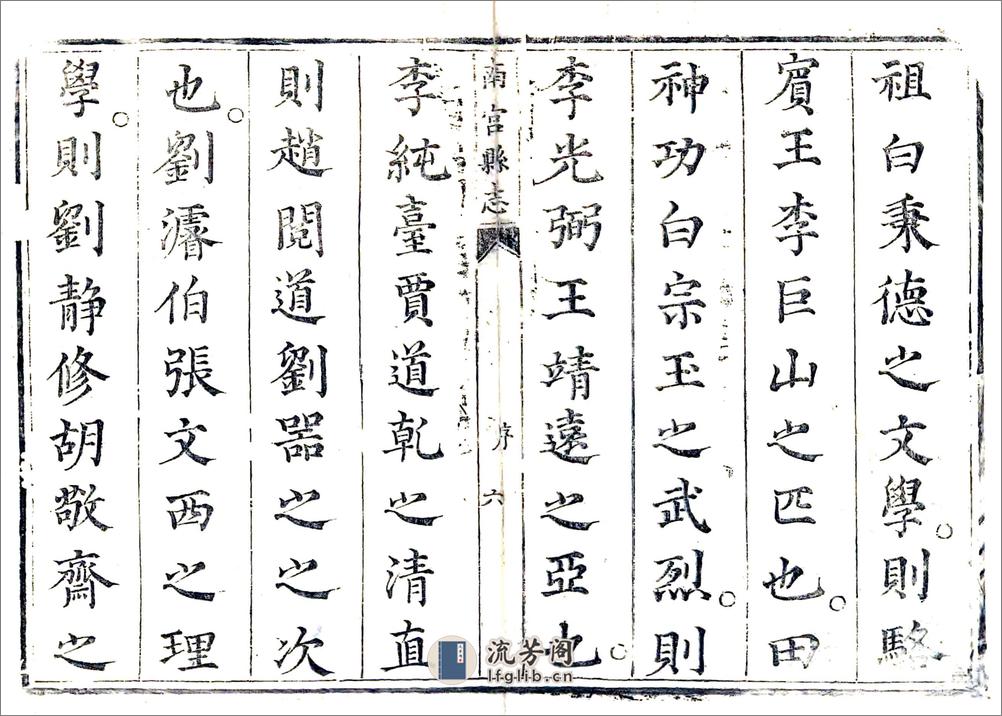 祖白秉德之文學。則駱
賓王李巨山之匹也。田
神功白宗玉之武烈。則
李光弼王靖遠之亞也。
南宮縣志
序
六
李純臺賈道乾之清直
則趙閱道劉器之之次
也。劉濬伯張文西之理
學。則劉靜修胡敬齋之
流芳阁
lfglib.cn